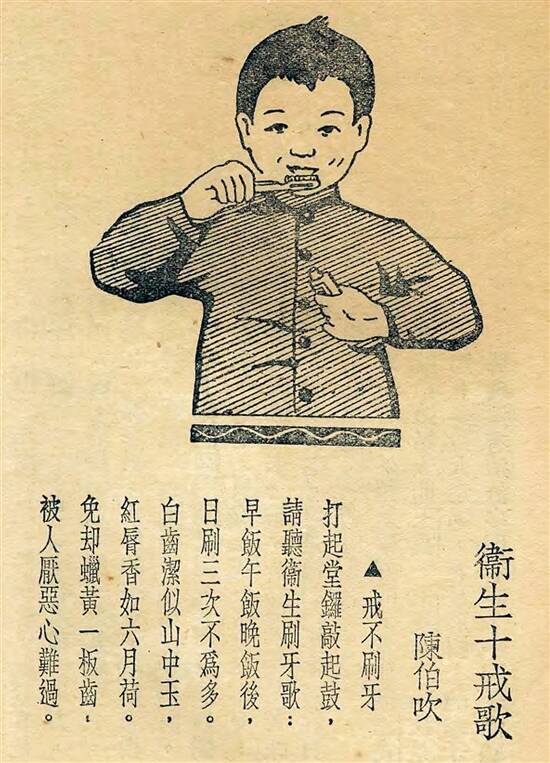 衞生十戒歌
陳伯吹
▲戒不刷牙
打起堂鑼敲起鼓，
請聽衞生刷牙歌：
早飯午飯晚飯後，
日刷三次不爲多。
白齒潔似山中玉，
紅唇香如六月荷。
免却蠟黃一板齒；
被人厭惡心難過。